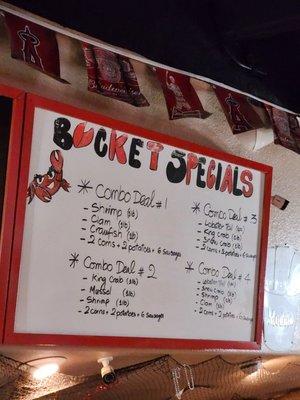 Bucket Specials
* Combo Deal #1
- Shrimp (1lb)
- Clam (1lb)
- Crawfish (1lb)
- 2 corns + 2 potatoes + 6 sausages
* Combo Deal # 2
- King Crab (1lb)
- Mussel (1lb)
- Shrimp (1lb)
- 2 corns + 2 potatoes + 6 Sausages
* Combo Deal # 3
- Lobster Tail
- King Crab (1lb)
- Snow Crab (1lb)
- 2 corns + 2 potatoes + 6 Sausages
* Combo Deal # 4
- Lobster Tail
- Snow Crab (1lb)
- Shrimp (1lb)
- Clam (1lb)
- 2 corns + 2 potatoes + 6 Sausages